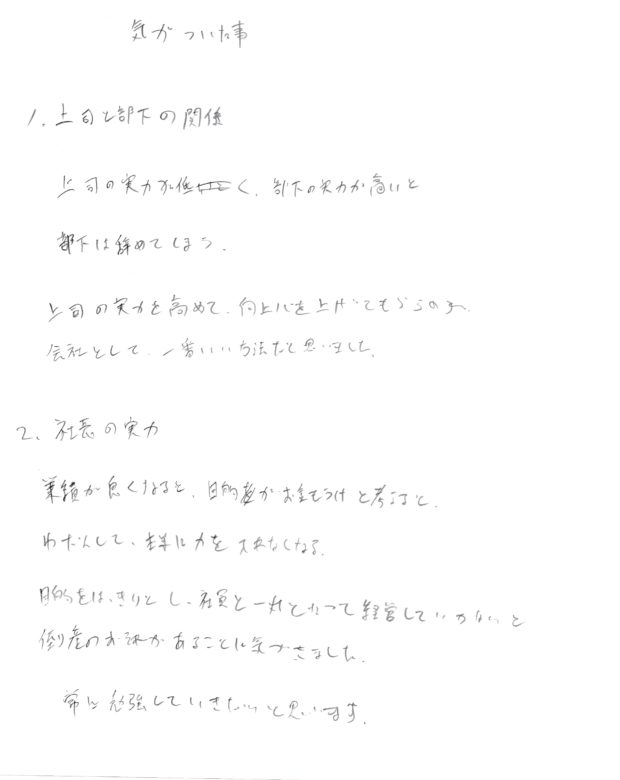 気がついた事
1. 上司と部下の関係
上司の実力が低く、部下の実力が高いと
部下は辞めてしまう。
上司の実力を高めて、向上心を上げてもらうのが、
会社として、一番いい方法だと思いました。
2、社長の実力
業績が良くなると、目的がお金もうけと考えると、
して、に力を なくなる。
目的をはっきりとし、社員と一対となって経営していかないと
倒産のおそれがあることに気づきました。
常に勉強していきたいと思います。